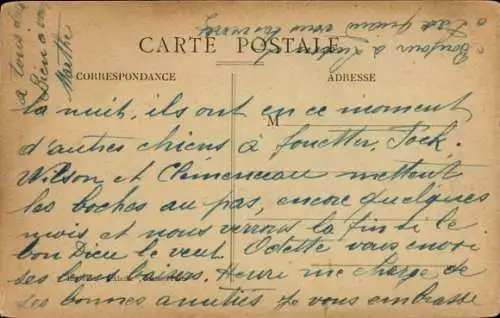 CARTE POSTALE
CORRESPONDANCE
ADRESSE
M
la nuit, ils ont en ce moment
d'autres chiens à fouetter. Foch.
Wilson et Clémenceau mettent
les boches au pas, encore quelques
mois et nous verrons la fin si le
bon Dieu le veut. Odette vous envoie
ses bons baisers. Henri me charge de
ses bonnes amitiés je vous embrasse
à tous
Bien à vous
Marthe
Bonjour à
vous